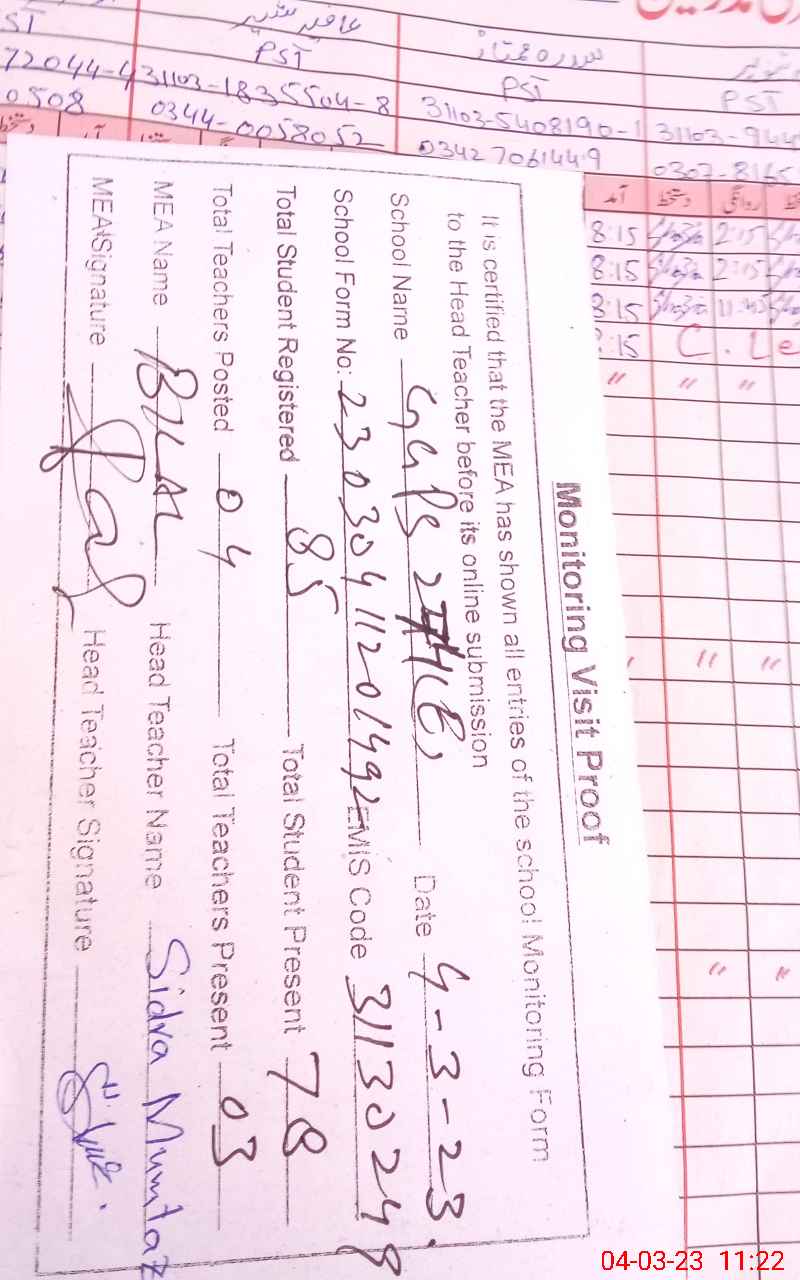 PST
PST
PST
72044-4
31103-1835504-8
31103-5408190-1
31103-944
0508
0344-0058052
0342 7061449
0307-8165
آمد
دستخط
روانگی
8:15
2:15
8:15
2:15
8:15
11:45
:15
C. Le
Monitoring Visit Proof
It is certified that the MEA has shown all entries of the school Monitoring Form
to the Head Teacher before its online submission
School Name Date 4-3-23
School Form No: 23030411201492 EMIS Code 31130248
Total Student Registered 85 Total Student Present 78
Total Teachers Posted 04 Total Teachers Present 03
MEA Name Head Teacher Name Sidra Mumtaz
MEA Signature Head Teacher Signature
04-03-23 11:22